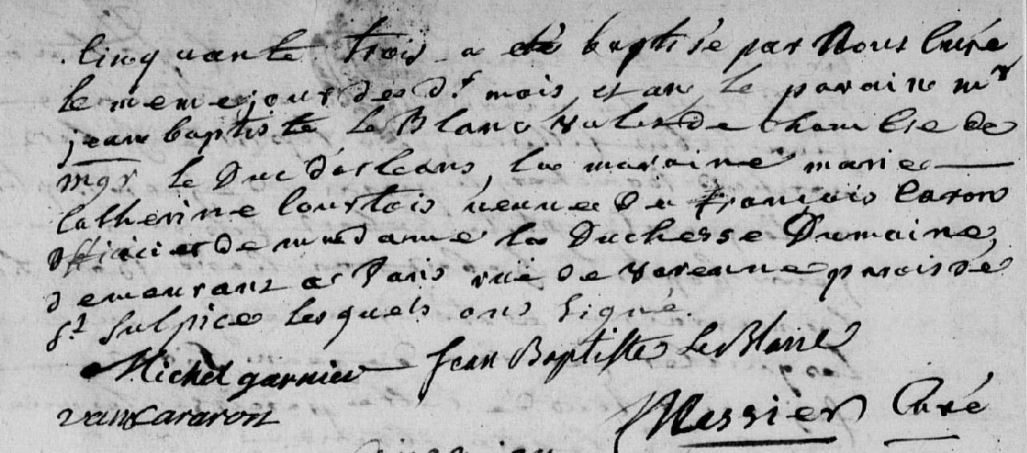 Cinquante trois a eté baptisé par Nous Curé
le meme jour des dts mois et an, le parain mr
jean baptiste le Blanc valet de chambre de
mgr le Duc d'orleans, la maraine marie
Catherine Courtois veuve du françois Caron
officier de madame la Duchesse Dumaine,
demeurant a Paris rue de varenne paroisse
St Sulpice lesquels ont signé.
Michel garnier Jean Baptiste le Blanc
Messier Curé